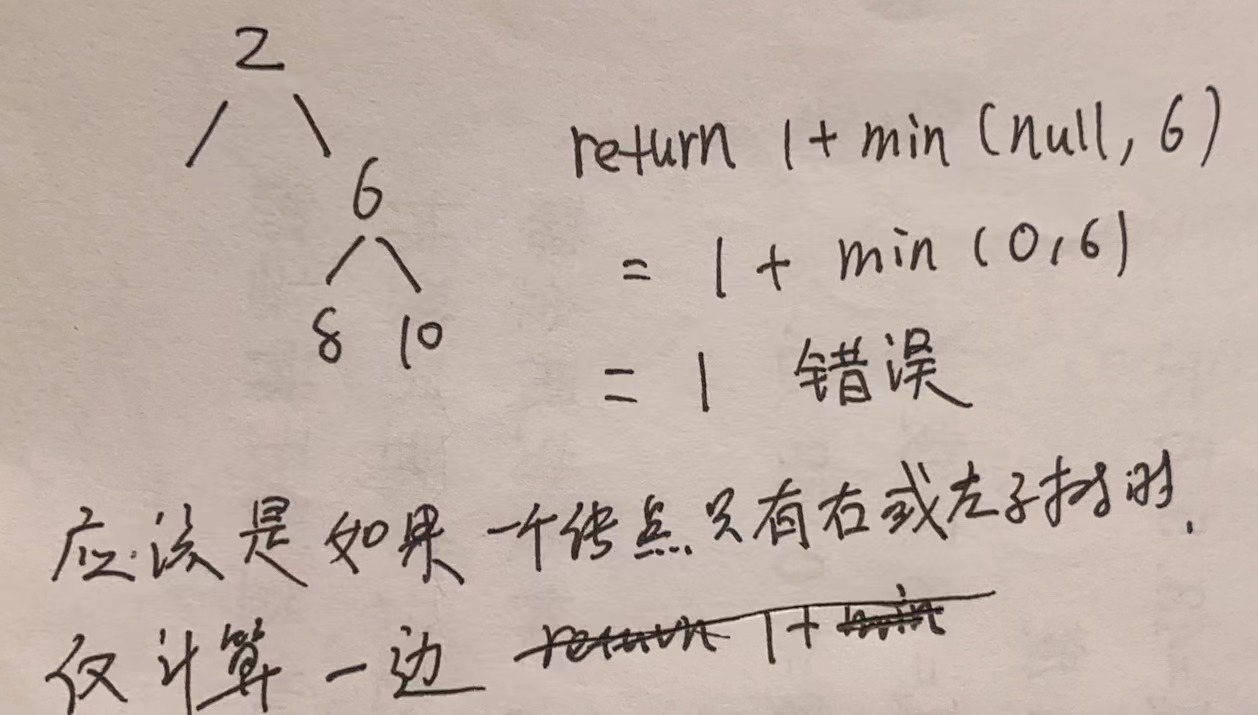 2
6
8 10
return 1 + min (null, 6)
= 1 + min (0, 6)
= 1 错误
应该是如果一个结点只有右或左子树时,
仅计算一边 return 1 + min